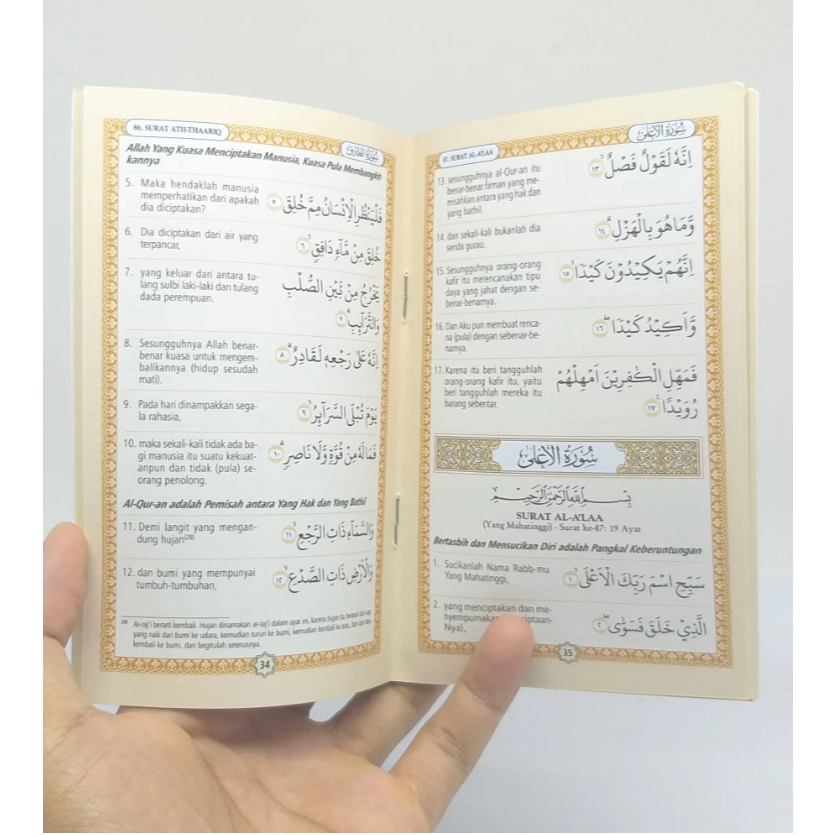 86. SURAT ATH-THAARIQ
سُورَةُ الطَّارِقِ
Allah Yang Kuasa Menciptakan Manusia, Kuasa Pula Membangkit-
kannya
5. Maka hendaklah manusia
memperhatikan dari apakah
dia diciptakan?
فَلْيَنْظُرِ الْاِنْسَانُ مِمَّ خُلِقَ ۝٥
6. Dia diciptakan dari air yang
terpancar,
خُلِقَ مِنْ مَّآءٍ دَافِقٍ ۝٦
7. yang keluar dari antara tu-
lang sulbi laki-laki dan tulang
dada perempuan.
يَخْرُجُ مِنْ بَيْنِ الصُّلْبِ
وَالتَّرَآئِبِ ۝٧
8. Sesungguhnya Allah benar-
benar kuasa untuk mengem-
balikannya (hidup sesudah
mati).
اِنَّهٗ عَلٰى رَجْعِهٖ لَقَادِرٌ ۝٨
9. Pada hari dinampakkan sega-
la rahasia,
يَوْمَ تُبْلَى السَّرَآئِرُ ۝٩
10. maka sekali-kali tidak ada ba-
gi manusia itu suatu kekuat-
anpun dan tidak (pula) se-
orang penolong.
فَمَا لَهٗ مِنْ قُوَّةٍ وَّلَا نَاصِرٍ ۝١٠
Al-Qur-an adalah Pemisah antara Yang Hak dan Yang Bathil
11. Demi langit yang mengan-
dung hujan
وَالسَّمَآءِ ذَاتِ الرَّجْعِ ۝١١
12. dan bumi yang mempunyai
tumbuh-tumbuhan,
وَالْاَرْضِ ذَاتِ الصَّدْعِ ۝١٢
Ar-raj'i berarti kembali. Hujan dinamakan ar-raj'i dalam ayat ini, karena hujan itu berasal dari uap
yang naik dari bumi ke udara, kemudian turun ke bumi, kemudian kembali ke atas, dan dari atas
kembali ke bumi, dan begitulah seterusnya.
34
87. SURAT AL-A'LAA
سُورَةُ الْاَعْلٰى
13. sesungguhnya al-Qur-an itu
benar-benar firman yang me-
misahkan antara yang hak dan
yang bathil.
اِنَّهٗ لَقَوْلٌ فَصْلٌ ۝١٣
14. dan sekali-kali bukanlah dia
senda gurau.
وَّمَا هُوَ بِالْهَزْلِ ۝١٤
15. Sesungguhnya orang-orang
kafir itu merencanakan tipu
daya yang jahat dengan se-
benar-benarnya.
اِنَّهُمْ يَكِيْدُوْنَ كَيْدًا ۝١٥
16. Dan Aku pun membuat renca-
na (pula) dengan sebenar-be-
narnya.
وَّاَكِيْدُ كَيْدًا ۝١٦
17. Karena itu beri tangguhlah
orang-orang kafir itu, yaitu
beri tangguhlah mereka itu
barang sebentar.
فَمَهِّلِ الْكٰفِرِيْنَ اَمْهِلْهُمْ
رُوَيْدًا ۝١٧
سُورَةُ الْاَعْلٰى
بِسْمِ اللّٰهِ الرَّحْمٰنِ الرَّحِيْمِ
SURAT AL-A'LAA
(Yang Mahatinggi) - Surat ke-87: 19 Ayat
Bertasbih dan Mensucikan Diri adalah Pangkal Keberuntungan
1. Sucikanlah Nama Rabb-mu
Yang Mahatinggi,
سَبِّحِ اسْمَ رَبِّكَ الْاَعْلَى ۝١
2. yang menciptakan dan me-
nyempurnakan
Nya),
الَّذِيْ خَلَقَ فَسَوّٰى ۝٢
35